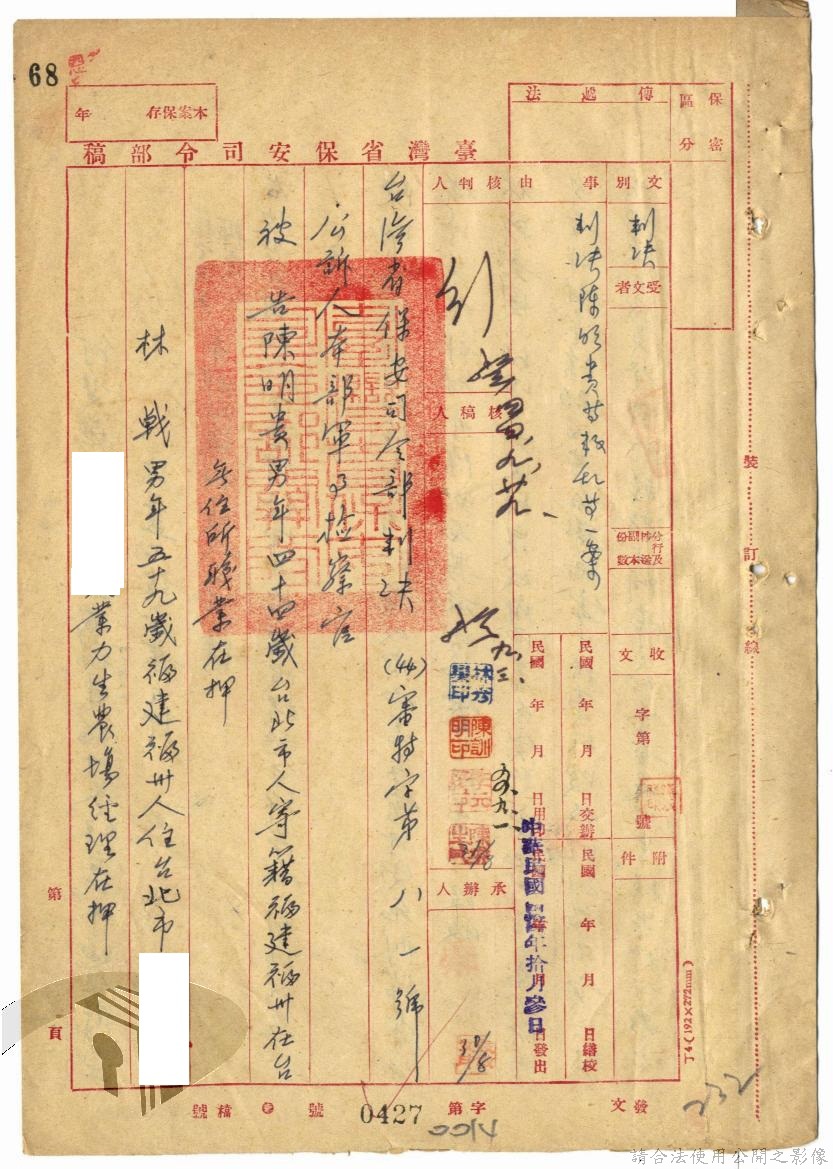 68
保密區分
傳遞法
本案保存 年
臺灣省保安司令部稿
文別
判決
受文者
事由
判決陳明貴等叛乱等一案
核判人
核稿人
承辦人
收文
字第
號
附件
民國 年 月 日交辦
民國 年 月 日繕校
民國 年 月
中華民國四肆年拾月參日
日發出
九、三、
五、九、一
31/8
30/8
台灣省保安司令部判决
(44)審特字第八一號
公訴人本部軍事檢察官
被告陳明貴男年四十四歲台北市人寄籍福建福州在台
無住所職業在押
林戰男年五十九歲福建福州人住台北市
業力生農場經理在押
裝訂線
第 頁
發文
字第
0427
號
稿號
4100
232
丁4(192×272mm)
請合法使用公開之影像